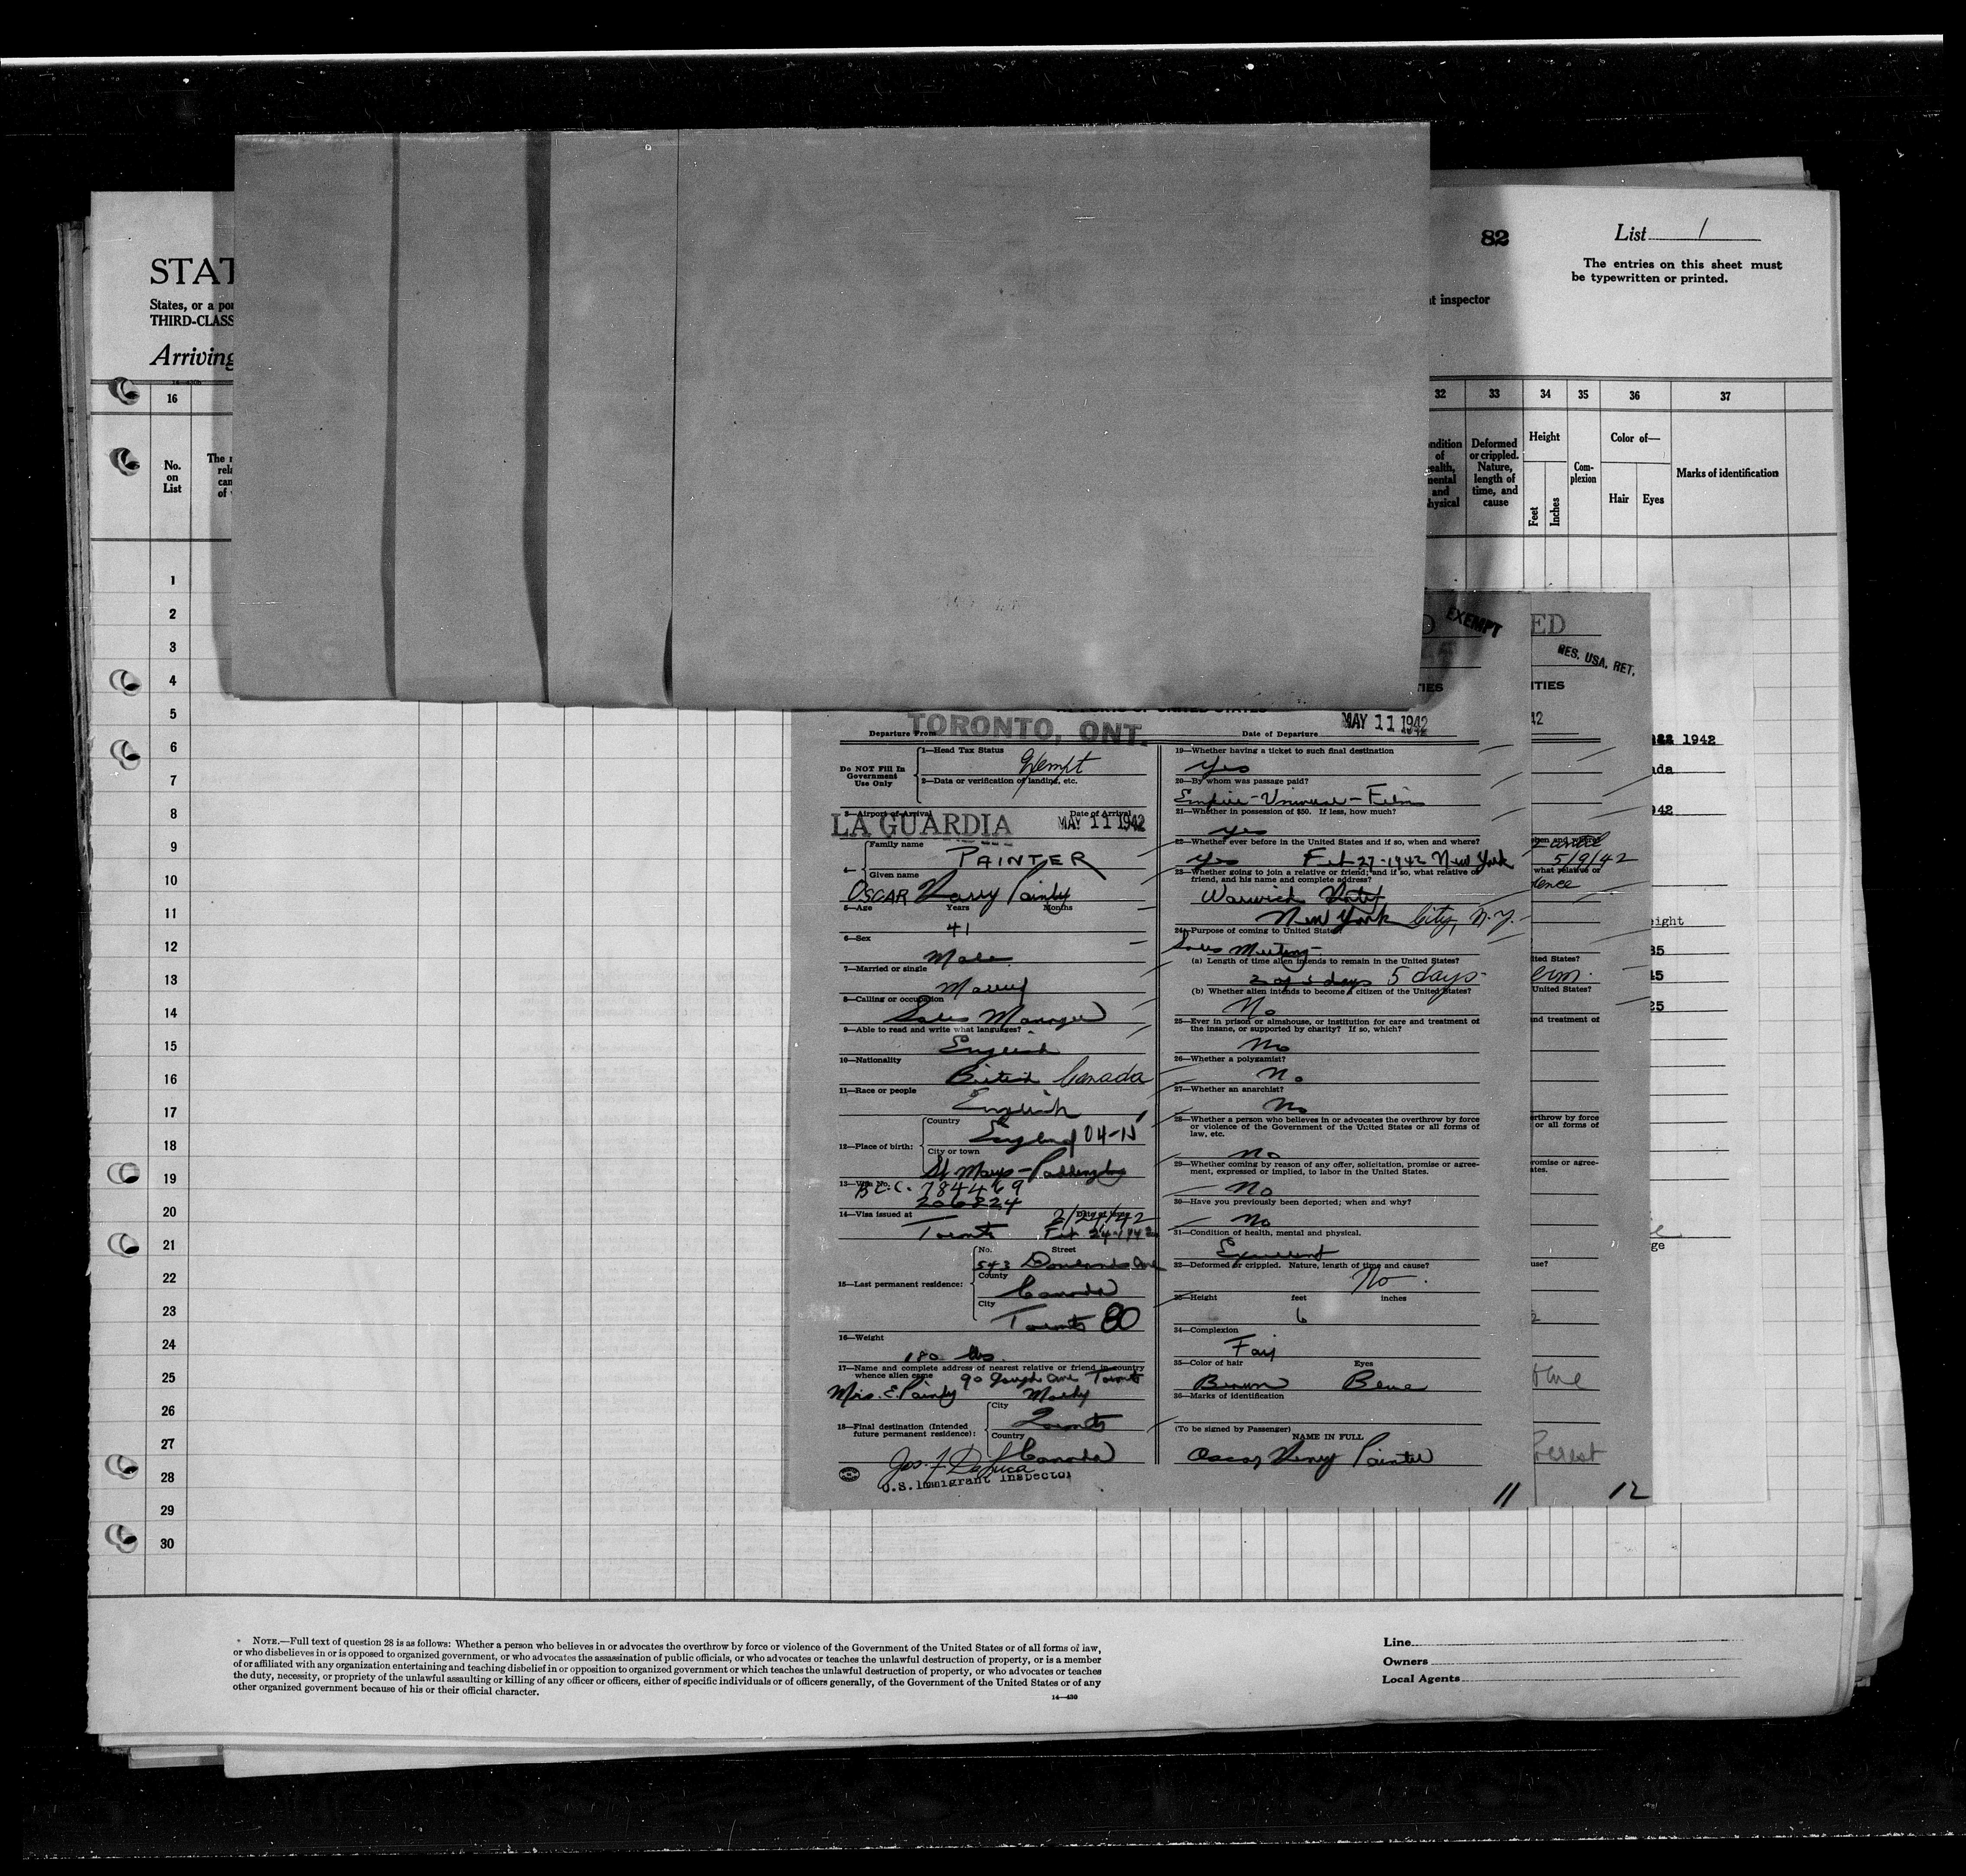 82
List 1
STAT
The entries on this sheet must
be typewritten or printed.
States, or a
THIRD-CLASS
inspector
Arriving
16
32 33 34 35 36 37
No.
on
List
of
mental
and
Deformed
or crippled.
Nature,
length of
time, and
cause
Height
Feet
Inches
Com-
plexion
Color of—
Hair Eyes
Marks of identification
1
2
3
4
5
6
7
8
9
10
11
12
13
14
15
16
17
18
19
20
21
22
23
24
25
26
27
28
29
30
EXEMPT
ED
RES. USA. RET.
TIES
ITIES
Departure From TORONTO, ONT.
Date of Departure MAY 11 1942
Do NOT Fill In
Government
Use Only
1—Head Tax Status
Exempt
2—Data or verification of landing, etc.
3—Airport of Arrival Date of Arrival
LA GUARDIA MAY 11 1942
4—
Family name
PAINTER
Given name
OSCAR Harry
5—Age Years Months
41
6—Sex
Male
7—Married or single
Married
8—Calling or occupation
Sales Manager
9—Able to read and write what languages?
English
10—Nationality
British Canada
11—Race or people
English
12—Place of birth:
Country
England 04-15
City or town
St Marys - Paddington
13—Visa No.
B.C.C. 784469
206824
14—Visa issued at Date of Issue
2/24/42
Toronto Feb 24-1942
15—Last permanent residence:
No. Street
543 Ave
County
Canada
City
Toronto 80
16—Weight
180 lbs.
17—Name and complete address of nearest relative or friend in country
whence alien came
90 Gough Ave Toronto
Mrs. E.
18—Final destination (Intended
future permanent residence):
City
Toronto
Country
Canada
Jos. F. DeLuca
U.S. Immigrant Inspector
19—Whether having a ticket to such final destination
Yes
20—By whom was passage paid?
Empire-Universal-Film
21—Whether in possession of $50. If less, how much?
Yes
22—Whether ever before in the United States and if so, when and where?
Yes Feb 27-1942 New York
23—Whether going to join a relative or friend; and if so, what relative or
friend, and his name and complete address?
Warwick Hotel
New York City, N.Y.
24—Purpose of coming to United States
Sales Meeting
(a) Length of time alien intends to remain in the United States?
5 days
(b) Whether alien intends to become a citizen of the United States?
No
25—Ever in prison or almshouse, or institution for care and treatment of
the insane, or supported by charity? If so, which?
No
26—Whether a polygamist?
No
27—Whether an anarchist?
No
28—Whether a person who believes in or advocates the overthrow by force
or violence of the Government of the United States or all forms of
law, etc.
No
29—Whether coming by reason of any offer, solicitation, promise or agree-
ment, expressed or implied, to labor in the United States.
No
30—Have you previously been deported; when and why?
No
31—Condition of health, mental and physical.
Excellent
32—Deformed or crippled. Nature, length of time and cause?
No.
33—Height feet inches
6
34—Complexion
Fair
35—Color of hair Eyes
Brown Blue
36—Marks of identification
(To be signed by Passenger)
NAME IN FULL
Oscar Henry Painter
11
12
1942
5/9/42
what relative or
ited States?
United States?
nd treatment of
erthrow by force
or all forms of
romise or agree-
ates.
use?
* NOTE.—Full text of question 28 is as follows: Whether a person who believes in or advocates the overthrow by force or violence of the Government of the United States or of all forms of law,
or who disbelieves in or is opposed to organized government, or who advocates the assassination of public officials, or who advocates or teaches the unlawful destruction of property, or is a member
of or affiliated with any organization entertaining and teaching disbelief in or opposition to organized government or which teaches the unlawful destruction of property, or who advocates or teaches
the duty, necessity, or propriety of the unlawful assaulting or killing of any officer or officers, either of specific individuals or of officers generally, of the Government of the United States or of any
other organized government because of his or their official character.
14—430
Line
Owners
Local Agents